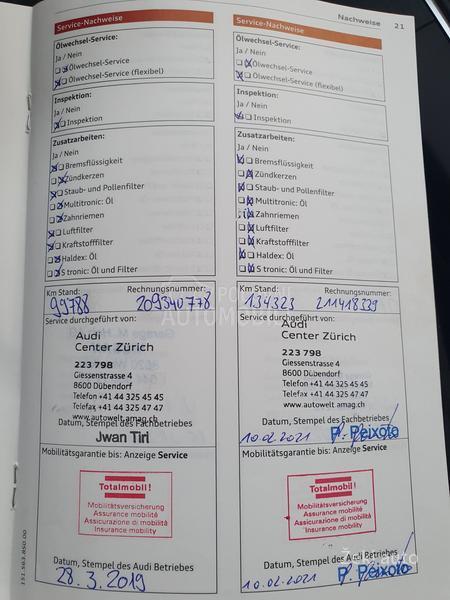 Nachweise 21
Service-Nachweise
Ölwechsel-Service:
Ja / Nein
Ölwechsel-Service
Ölwechsel-Service (flexibel)
Inspektion:
Ja / Nein
Inspektion
Zusatzarbeiten:
Ja / Nein
Bremsflüssigkeit
Zündkerzen
Staub- und Pollenfilter
Multitronic: Öl
Zahnriemen
Luftfilter
Kraftstofffilter
Haldex: Öl
S tronic: Öl und Filter
Km Stand: Rechnungsnummer:
99788 209340778
Service durchgeführt von:
Audi
Center Zürich
223 798
Giessenstrasse 4
8600 Dübendorf
Telefon +41 44 325 45 45
Telefax +41 44 325 47 47
www.autowelt.amag.ch
Datum, Stempel des Fachbetriebes
Jwan Tiri
Mobilitätsgarantie bis: Anzeige Service
Totalmobil!
Mobilitätsversicherung
Assurance mobilité
Assicurazione di mobilità
Insurance mobility
Datum, Stempel des Audi Betriebes
28.3.2019
Service-Nachweise
Ölwechsel-Service:
Ja / Nein
Ölwechsel-Service
Ölwechsel-Service (flexibel)
Inspektion:
Ja / Nein
Inspektion
Zusatzarbeiten:
Ja / Nein
Bremsflüssigkeit
Zündkerzen
Staub- und Pollenfilter
Multitronic: Öl
Zahnriemen
Luftfilter
Kraftstofffilter
Haldex: Öl
S tronic: Öl und Filter
Km Stand: Rechnungsnummer:
134323 211418339
Service durchgeführt von:
Audi
Center Zürich
223 798
Giessenstrasse 4
8600 Dübendorf
Telefon +41 44 325 45 45
Telefax +41 44 325 47 47
www.autowelt.amag.ch
Datum, Stempel des Fachbetriebes
10.02.2021 P. Peixoto
Mobilitätsgarantie bis: Anzeige Service
Totalmobil!
Mobilitätsversicherung
Assurance mobilité
Assicurazione di mobilità
Insurance mobility
Datum, Stempel des Audi Betriebes
10.02.2021 P. Peixoto
151.563.850.00